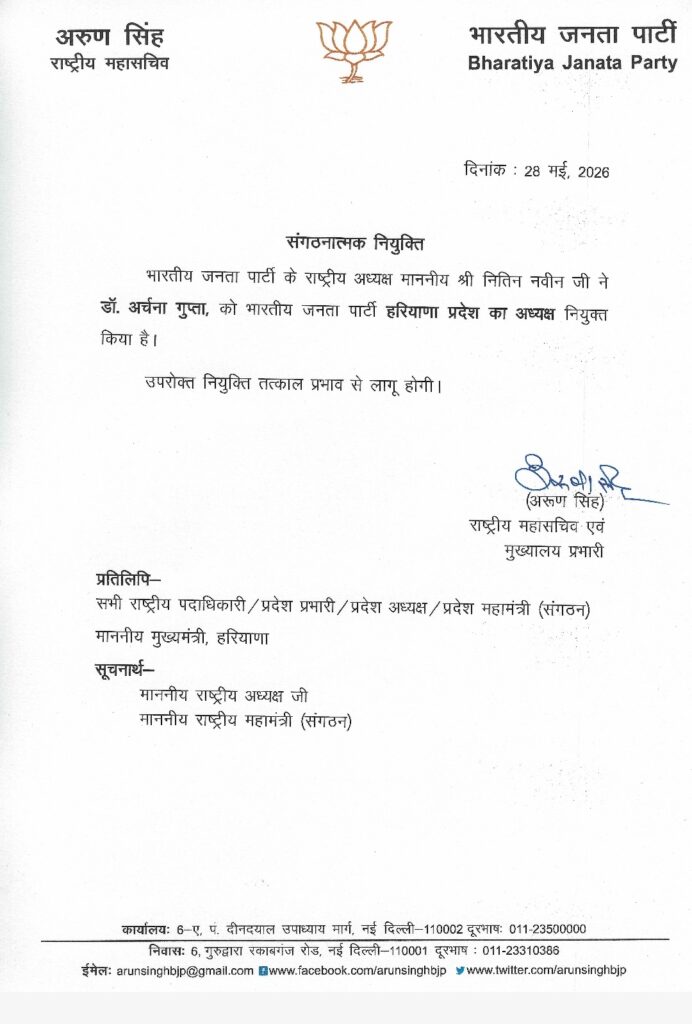 अरुण सिंह
राष्ट्रीय महासचिव
भारतीय जनता पार्टी
Bharatiya Janata Party
दिनांक : 28 मई, 2026
संगठनात्मक नियुक्ति
भारतीय जनता पार्टी के राष्ट्रीय अध्यक्ष माननीय श्री नितिन नवीन जी ने
डॉ. अर्चना गुप्ता, को भारतीय जनता पार्टी हरियाणा प्रदेश का अध्यक्ष नियुक्त
किया है।
उपरोक्त नियुक्ति तत्काल प्रभाव से लागू होगी।
(अरूण सिंह)
राष्ट्रीय महासचिव एवं
मुख्यालय प्रभारी
प्रतिलिपि–
सभी राष्ट्रीय पदाधिकारी/प्रदेश प्रभारी/प्रदेश अध्यक्ष/प्रदेश महामंत्री (संगठन)
माननीय मुख्यमंत्री, हरियाणा
सूचनार्थ–
माननीय राष्ट्रीय अध्यक्ष जी
माननीय राष्ट्रीय महामंत्री (संगठन)
कार्यालयः 6–ए, पं. दीनदयाल उपाध्याय मार्ग, नई दिल्ली–110002 दूरभाषः 011-23500000
निवासः 6, गुरुद्वारा रकाबगंज रोड, नई दिल्ली–110001 दूरभाष : 011-23310386
ईमेलः arunsinghbjp@gmail.com www.facebook.com/arunsinghbjp www.twitter.com/arunsinghbjp